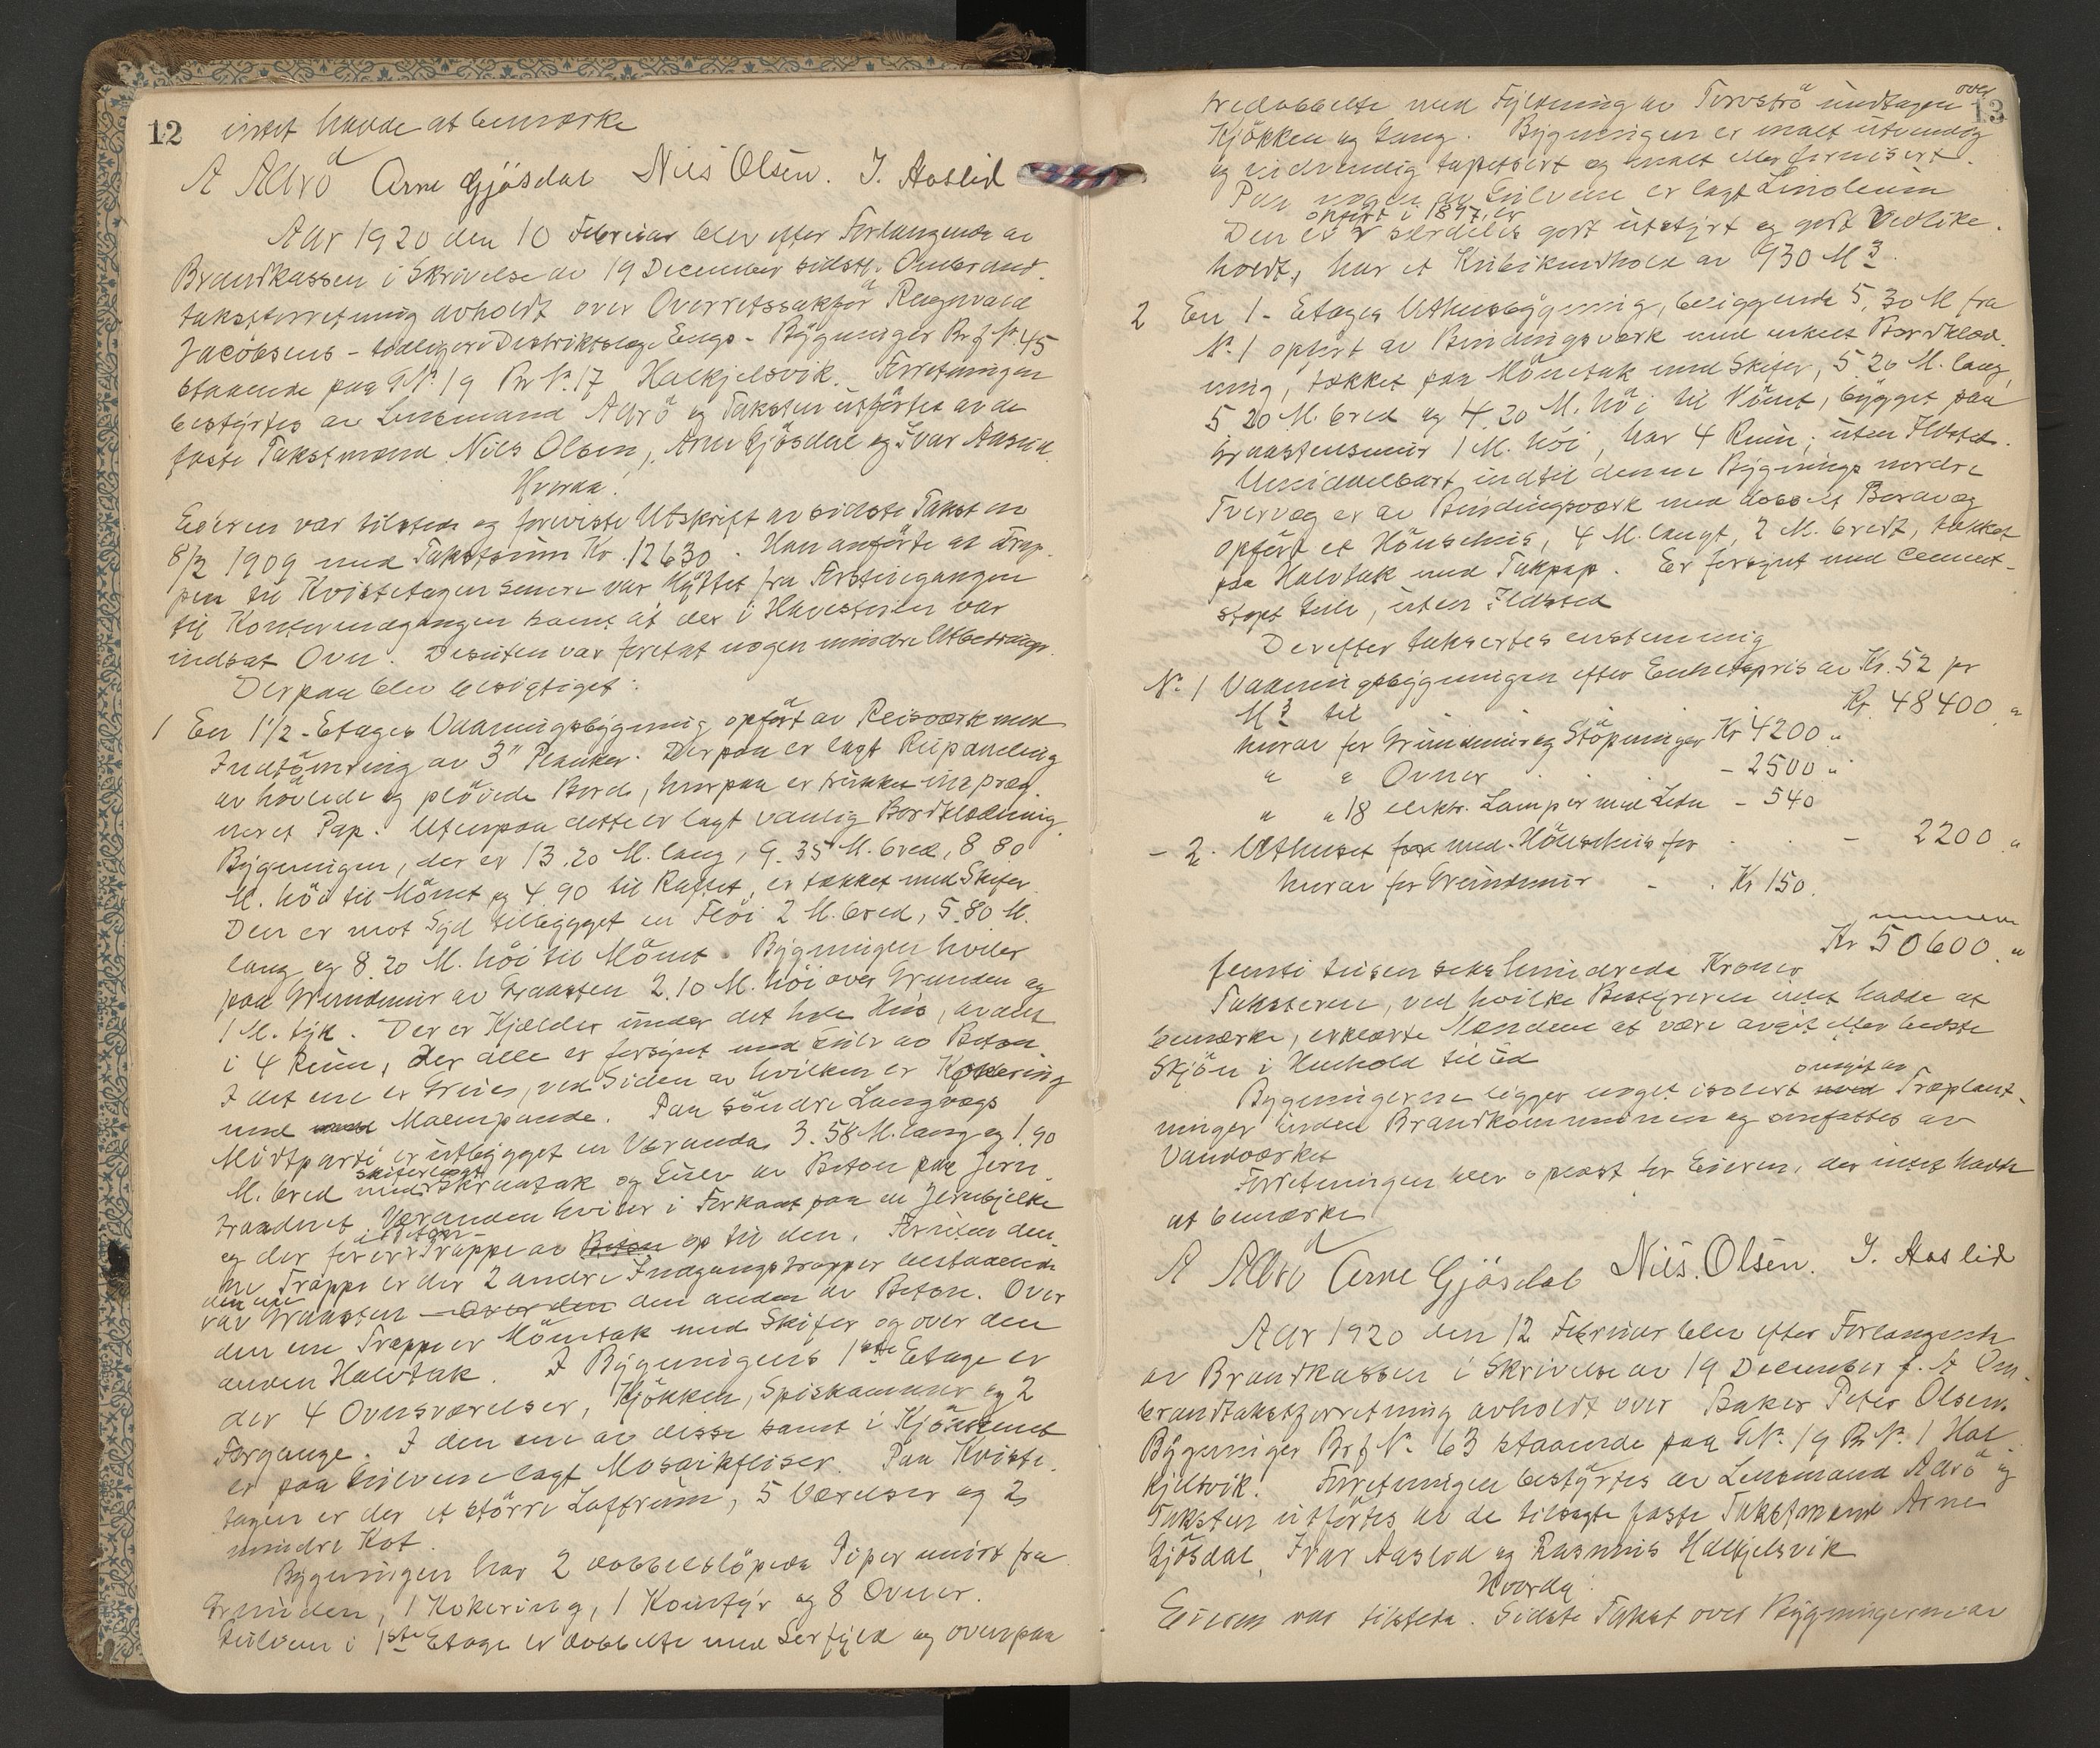 12
intet havde at bemærke
A Aarö Arne Gjösdal Nils Olsen. I. Aaslid
Aar 1920 den 10 Februar blev efter Forlangende av
Brandkassen i Skrivelse av 19 December sidstl. Ombrand-
takstforretning avholdt over Overretssakför Ragnvald
Jacobsens - tidligere Distriktslæge Engs - Bygninger Brf No. 45
staaende paa GNo. 19 Br No. 17 Halkjelsvik. Forretningen
bestyrtes av Lensmand Aarö og Taksten utförtes av de
faste Takstmænd Nils Olsen, Arne Gjösdal og Ivar Aaslid.
Hvorda!
Eieren var tilstede og foreviste Utskrift av sidste Takst av
8/2 1909 med Takstsum Kr. 12630. Han anförte at Trap-
pen til Kvistetagen senere var flyttet fra Forstuegangen
til Kontorindgangen samt at der i Havestuen var
indsat Ovn. Desuten var foretat nogen mindre Utbedringer.
Derpaa blev besigtiget:
1 En 1 1/2 - Etages Vaaningsbygning opfört av Reisværk med
Indtömring av 3" Planker. Derpaa er lagt Rupaneling
av hövlede og plöiede Bord, hvorpaa er trukket impræg-
neret Pap. Utenpaa dette er lagt vanlig Bordklædning.
Bygningen, der er 13.20 M. lang, 9.35 M. bred, 8.80
M. höi til Mönet og 4.90 til Raftet, er tækket med Skifer.
Den er mot Syd tilbygget en Flöi 2 M. bred, 5.80 M.
lang og 8.20 M. höi til Mönet. Bygningen hviler
paa Grundmur av Graasten 2.10 M. höi over Grunden og
1 M. tyk. Der er Kjælder under det hele Hus, avdelt
i 4 Rum, der alle er forsynt med Gulv av Beton.
I det ene er Grue, ved Siden av hvilken er Kokering
med Malmpande. Paa söndre Langvægs
Midtparti er utbygget en Veranda 3.58 M. lang og 1.90
M. bred med skiferlagt Skraatak og Gulv av Beton paa Jern-
traadnet. Verandaen hviler i Forkant paa en Jernbjelke
og der förer en Beton- Trappe av Beton op til den. Foruten den-
ne Trappe er der 2 andre Indgangstrapper bestaaende
den ene av Graasten Over den den anden av Beton. Over
den ene Trappe er Mönetak med Skifer og over den
anden Halvtak. I Bygningens 1ste Etage er
der 4 Ovnsværelser, Kjökken, Spiskammer og 2
Forgange. I den ene av disse samt i Kjökkenet
er paa Gulvene lagt Mosaikfliser. Paa Kvist-
etagen er der et större Loftrum, 5 Værelser og 2
mindre Kot.
Bygningen har 2 dobbeltlöpede Piper murt fra
Grunden, 1 Kokering, 1 Komfyr og 8 Ovner.
Gulvene i 1ste Etage er dobbelte med Lerfyld og ovenpaa
13
tredobbelte med Fyldning av Torvströ undtagen over
Kjökken og Gang. Bygningen er malt utvendig
og indvendig tapetsert og malt eller fernisert.
Paa nogen av Gulvene er lagt Linoleum
Den er opfört i 1897, er særdeles godt utstyrt og godt vedlike-
holdt, har et Kubikindhold av 930 M3.
2 En 1 - Etages Uthusbygning, beliggende 5.30 M. fra
No. 1 opfört av Bindingsværk med enkelt Bordklæd-
ning, tækket paa Mönetak med Skifer, 5.20 M. lang,
5.20 M. bred og 4.20 M. höi til Mönet, bygget paa
Graastensmur 1 M. höi, har 4 Rum; uten Ildsted.
Umiddelbart indtil denne Bygnings nordre
Tvervæg er av Bindingsværk med dobbelt Bordvæg
opfört et Hönsehus, 4 M. langt, 2 M. bredt, tækket
paa Halvtak med Takpap. Er forsynt med cement-
stöpt Gulv, uten Ildsted
Derefter taksertes enstemmig
No. 1 Vaaningsbygningen efter Enhetspris av Kr. 52 pr
M3 til . . . Kr 48400 "
hvorav for Grundmur og Stöpninger Kr 4200 "
" " Ovner . . . - 2500 "
" " 18 elektr. Lamper med Ledn - 540
- 2. Uthuset for med Hönsehus for . . - 2200 "
hvorav for Grundmur - . Kr 150.
Kr 50600 "
femti tusen seks hundrede Kroner
Taksterne, ved hvilke Bestyreren intet hadde at
bemærke, erklærte Mændene at være avgit efter bedste
Skjön i Henhold til Ed
Bygningerne ligger noget isolert omgit av med Træplant-
ninger inden Brandkommunen og omfattes av
Vandværket
Forretningen blev oplæst for Eieren, der intet hadde
at bemærke
A Aarö Arne Gjösdal Nils. Olsen. I. Aaslid
Aar 1920 den 12 Februar blev efter Forlangende
av Brandkassen i Skrivelse av 19 December f. A Om-
brandtakstforretning avholdt over Baker Peter Olsens
Bygninger Brf No. 63 staaende paa GNo. 19 Br No. 1 Hal-
kjelsvik. Forretningen bestyrtes av Lensmand Aarö og
Taksten utförtes av de tilsagte faste Takstmænd Arne
Gjösdal, Ivar Aaslid og Rasmus Halkjelsvik
Hvorda!
Eieren var tilstede. Sidste Takst over Bygningerne av